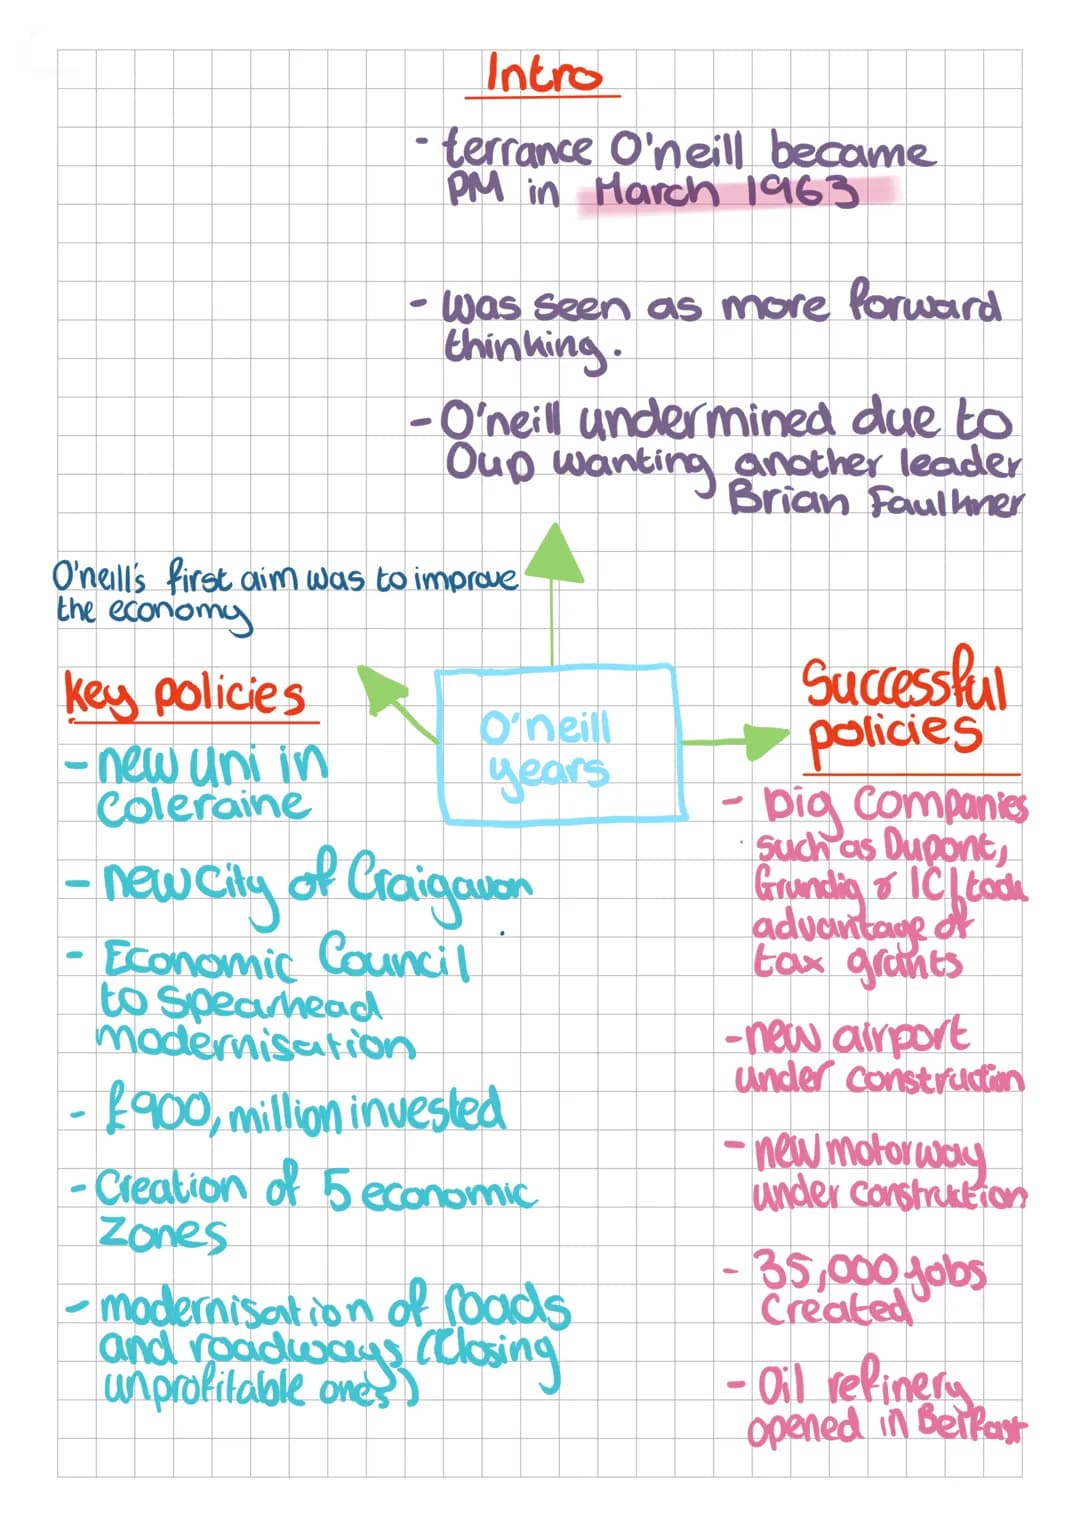 Intro
- terrance O'neill became
PM in March 1963
- was seen as more forward
thinking.
- O'neill undermined due to
Oup wanting another leader
Brian Faulkner
O'neill's first aim was to improve
the economy
O'neill
years
key policies
- new uni in
coleraine
- new City of Craigavon
- Economic Council
to spearhead
modernisation
- £900, million invested
- Creation of 5 economic
zones
- modernisation of roads
and roadways (closing
unprofitable ones)
Successful
policies
- big companies
such as Dupont,
Grundig & ICI took
advantage of
tax grants
- new airport
under construction
- new motorway
under construction
- 35,000 jobs
created
- Oil refinery
opened in Belfast